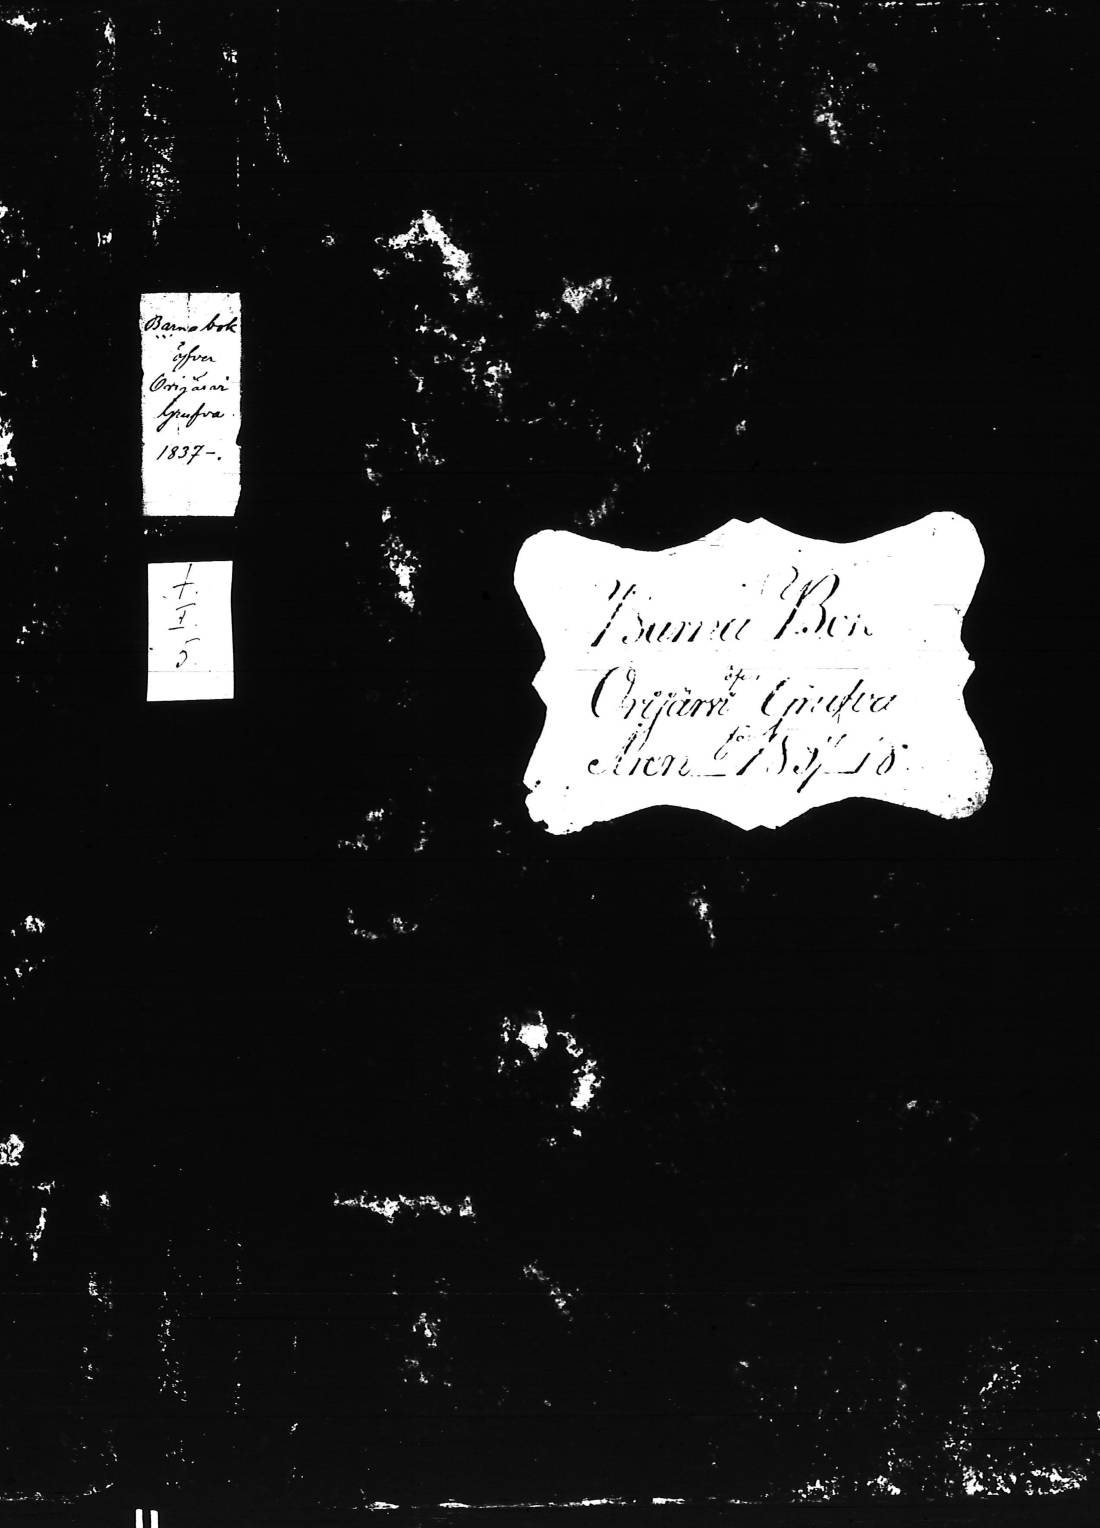 Barna bok
öfver
Orijärvi
Grufva
1837-.
I.
5.
Barna Bok
öfver
Orijärvi Grufva
för
Åren 1837 18